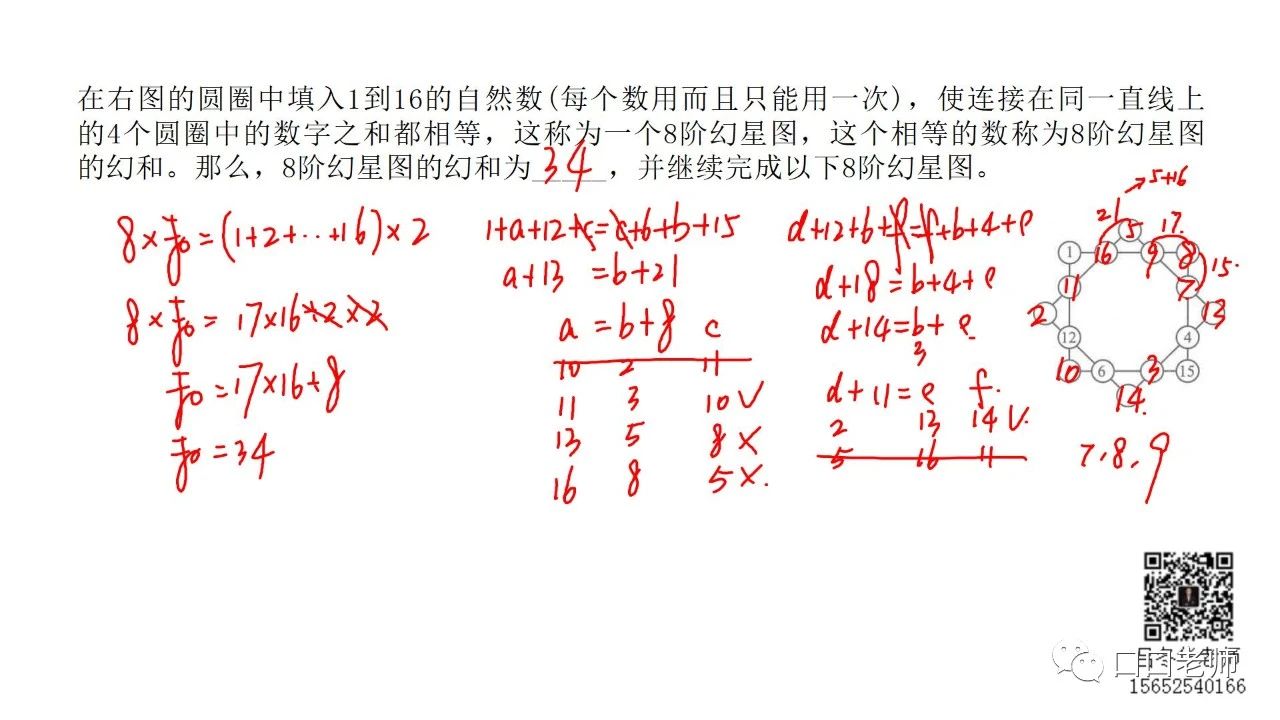 在右图的圆圈中填入1到16的自然数(每个数用而且只能用一次)，使连接在同一直线上
的4个圆圈中的数字之和都相等，这称为一个8阶幻星图，这个相等的数称为8阶幻星图
的幻和。那么，8阶幻星图的幻和为 34 ，并继续完成以下8阶幻星图。
8×和=(1+2+…+16)×2
8×和=17×16÷2×2
和=17×16÷8
和=34
1+a+12+c=c+6+b+15
a+13=b+21
a=b+8 c
10 2 11
11 3 10 √
13 5 8 ×
16 8 5 ×.
d+12+6+f=f+b+4+e
d+18=b+4+e
d+14=b+e
3
d+11=e f.
2 13 14 √.
5 16 11
5+16
21 5 17.
1 16 9 8
15.
11 7
2 13
12 4
10 6 3 15
14.
7.8.9
15652540166